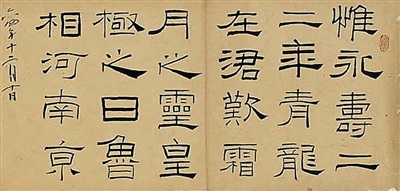 惟永壽二
二年青龍
在涒歎霜
月之靈皇
極之日魯
相河南京
六四年十二月十日